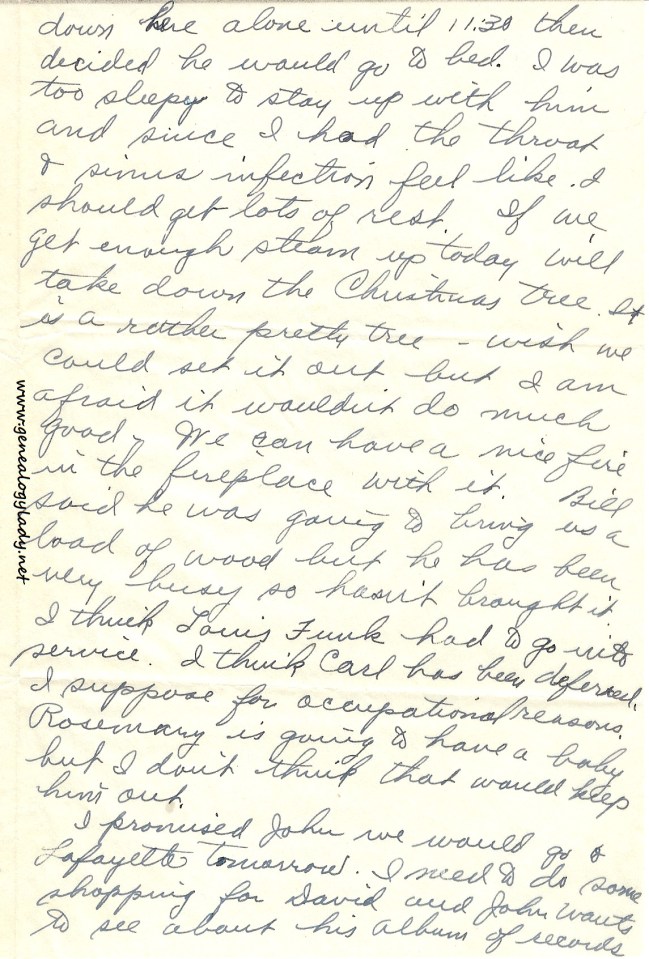 down here alone until 11:30 then
decided he would go to bed. I was
too sleepy to stay up with him
and since I had the throat
& sinus infection feel like I
should get lots of rest. If we
get enough steam up today will
take down the Christmas tree. It
is a rather pretty tree - wish we
could set it out but I am
afraid it wouldn't do much
good. We can have a nice fire
in the fireplace with it. Bill
said he was going to bring us a
load of wood but he has been
very busy so hasn't brought it.
I think Louis Funk had to go into
service. I think Carl has been deferred.
I suppose for occupational reasons.
Rosemary is going to have a baby
but I don't think that would keep
him out.
I promised John we would go to
Lafayette tomorrow. I need to do some
shopping for David and John wants
to see about his album of records
www.genealogylady.net